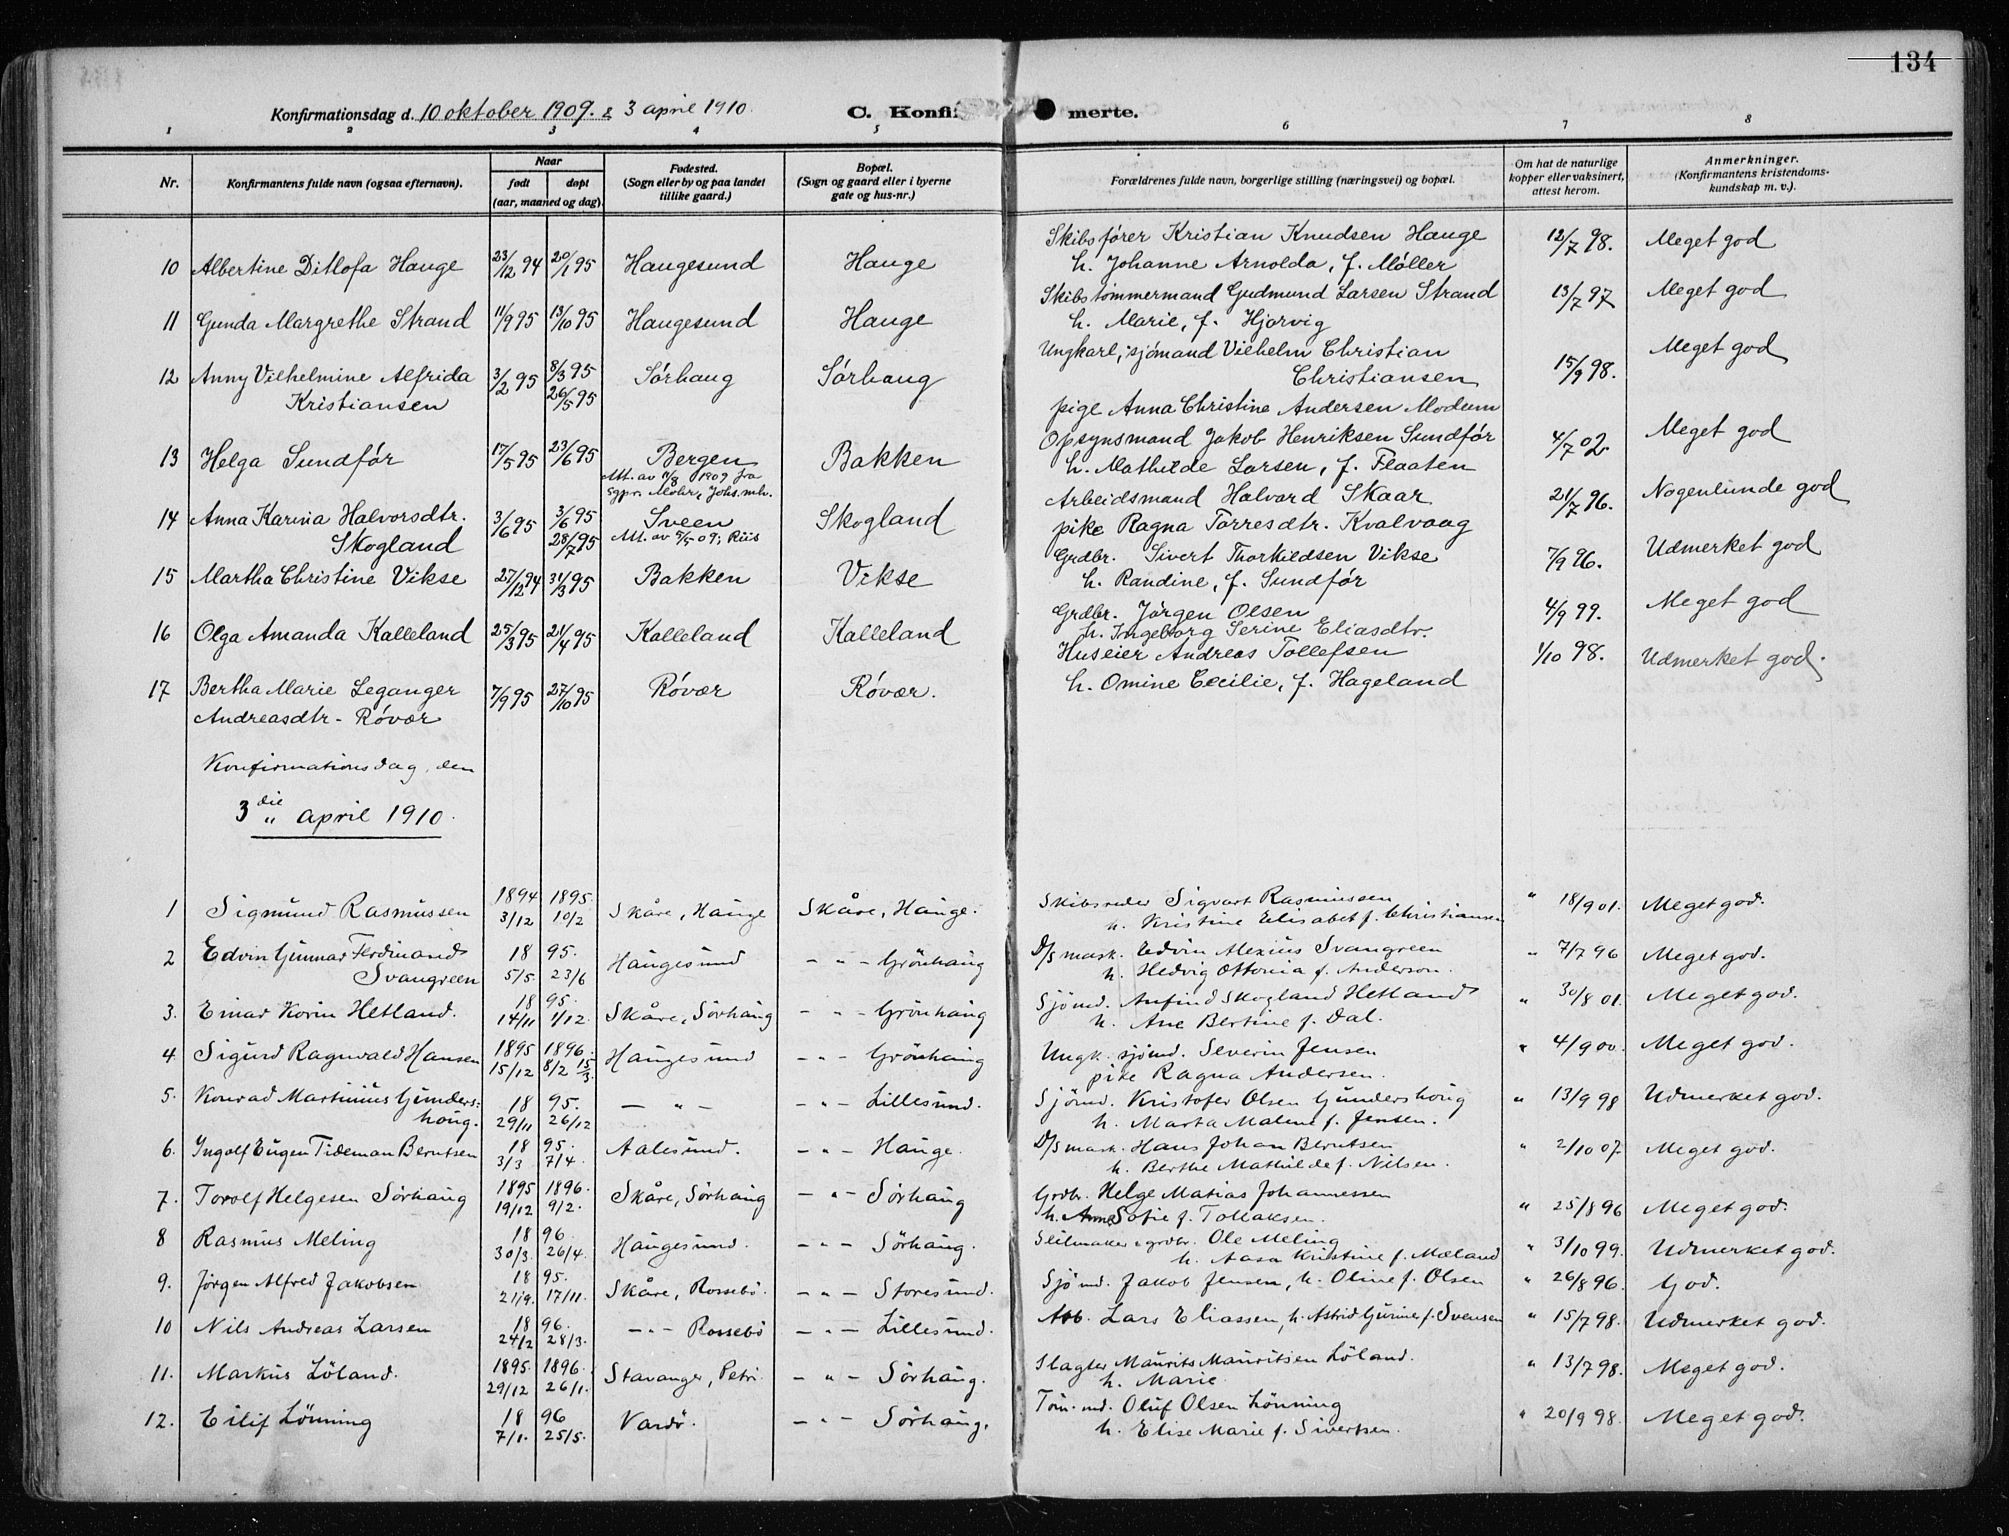 134
Konfirmationsdag d. 10 oktober 1909. & 3 april 1910. C. Konfi merte.
1 2 3 4 5 6 7 8
Nr. Konfirmantens fulde navn (ogsaa efternavn). Naar født døpt (aar, maaned og dag). Fødested. (Sogn eller by og paa landet tillike gaard.) Bopæl. (Sogn og gaard eller i byerne gate og hus-nr.) Forældrenes fulde navn, borgerlige stilling (næringsvei) og bopæl. Om hat de naturlige kopper eller vaksinert, attest herom. Anmerkninger. (Konfirmantens kristendomskundskap m. v.).
10 Albertine Ditlofa Hauge 23/12 94 20/1 95 Haugesund Hauge Skibsfører Kristian Knudsen Hauge 12/7 98. Meget god
h. Johanne Arnolda, f. Møller
11 Gunda Margrethe Strand 11/9 95 13/10 95 Haugesund Hauge Skibstømmermand Gudmund Larsen Strand 13/7 97 Meget god
h. Marie, f. Hjorvig
12 Anny Vilhelmine Alfrida 3/2 95 8/3 95 Sørhaug Sørhaug Ungkarl, sjómand Vilhelm Christian 15/9 98. Meget god
Kristiansen 26/5 95 Christiansen
pige Anna Christine Andersen Modum
13 Helga Sundfør 17/5 95 23/6 95 Bergen Bakken Opsynsmand Jakob Henriksen Sundfør 4/7 02 Meget god
Att. av 11/8 1909 fra sgpr. Mohr, Johs. mh. h. Mathilde Larsen, f. Flaaten
14 Anna Karina Halvorsdtr. 3/6 95 3/6 95 Sveen Skogland Arbeidsmand Halvard Skaar 21/7 96. Nogenlunde god
Skogland 28/7 95 Att. av 5/5 09; Riis pike Ragna Torresdtr. Kvalvaag
15 Martha Christine Vikse 27/12 94 31/3 95 Bakken Vikse Grdbr. Sivert Thorkildsen Vikse 7/9 96. Udmerket god
h. Randine, f. Sundfør
16 Olga Amanda Kalleland 25/3 95 21/4 95 Kalleland Kalleland Grdbr. Jørgen Olsen 4/9 99. Meget god
h. Ingeborg Serine Eliasdtr.
17 Bertha Marie Leganger 7/9 95 27/10 95 Røvær Røvær. Huseier Andreas Tollefsen 1/10 98. Udmerket god.
Andreasdtr - Røvær h. Omine Cecilie, f. Hageland
Konfirmationsdag, den
3die april 1910.
1 Sigmund Rasmussen 1894 3/12 1895 10/2 Skåre, Hauge Skåre, Hauge. Skibsreder Sigvart Rasmussen " 18/9 01. Meget god.
h. Kristine Elisabet f. Christiansen
2 Edvin Gunnar Ferdinand 18 95. Haugesund - " - Grönhaug D/S mask. Edvin Alexius Svangreen " 7/7 96 Meget god.
Svangreen 5/5. 23/6 h. Hedvig Ottonia f. Anderson.
3. Einar Korin Hetland. 18 95. 14/11 1/12. Skåre, Sörhaug - " - Grönhaug Sjömd. Anfind Skogland Hetland " 30/8 01. Meget god.
h. Ane Bertine f. Dal.
4 Sigurd Ragnvald Hansen 1895 15/12 1896. 8/2 15/3. Haugesund - " - Grönhaug Ungk. sjömd. Severin Jensen " 4/9 00. Meget god.
pike Ragna Andersen.
5. Konrad Martinius Gunders= 18 95. - " - - " - Lillesund. Sjömd. Kristofer Olsen Gundershoug " 13/9 98 Udmerket god.
houg. 29/11 26/12 h. Marta Malene f. Jensen.
6. Ingolf Eugen Tideman Berntsen 18 95. 3/3 7/4. Aalesund. - " - Hauge. D/S mask. Hans Johan Berntsen " 2/10 07. Meget god.
h. Berthe Mathilde f. Nilsen.
7. Torolf Helgesen Sörhaug 1895 19/12 1896. 9/2. Skåre, Sörhaug - " - Sörhaug Grdbr. Helge Matias Johannessen " 25/8 96 Meget god.
h. Anna Sofie f. Tollaksen.
8 Rasmus Meling 18 96 30/3. 26/4. Haugesund. - " - Sörhaug. Seilmaker & grdbr. Ole Meling " 3/10 99. Udmerket god.
h. Aasa Kristine f. Mæland
9. Jörgen Alfred Jakobsen 18 95. 21/9. 17/11. Skåre, Rossebö. - " - Storesund. Sjömd. Jakob Jensen, h. Oline f. Olsen " 26/8 96. God.
10 Nils Andreas Larsen 18 96. 24/2 28/3. - " - Rossebö - " - Lillesund. Arb. Lars Eliassen, h. Astrid Gurine f. Svensen " 15/7 98. Udmerket god.
11. Markus Löland. 1895. 29/12 1896. 26/1. Stavanger, Petri - " - Sörhaug. Slagter Maurits Mauritsen Löland. " 13/7 98. Meget god.
h. Marie
12. Eilif Lönning 18 96 7/1. 25/5. Vardö. - " - Sörhaug. Töm.md. Oluf Olsen Lönning " 20/9 98. Meget god.
h. Elise Marie f. Sivertsen.